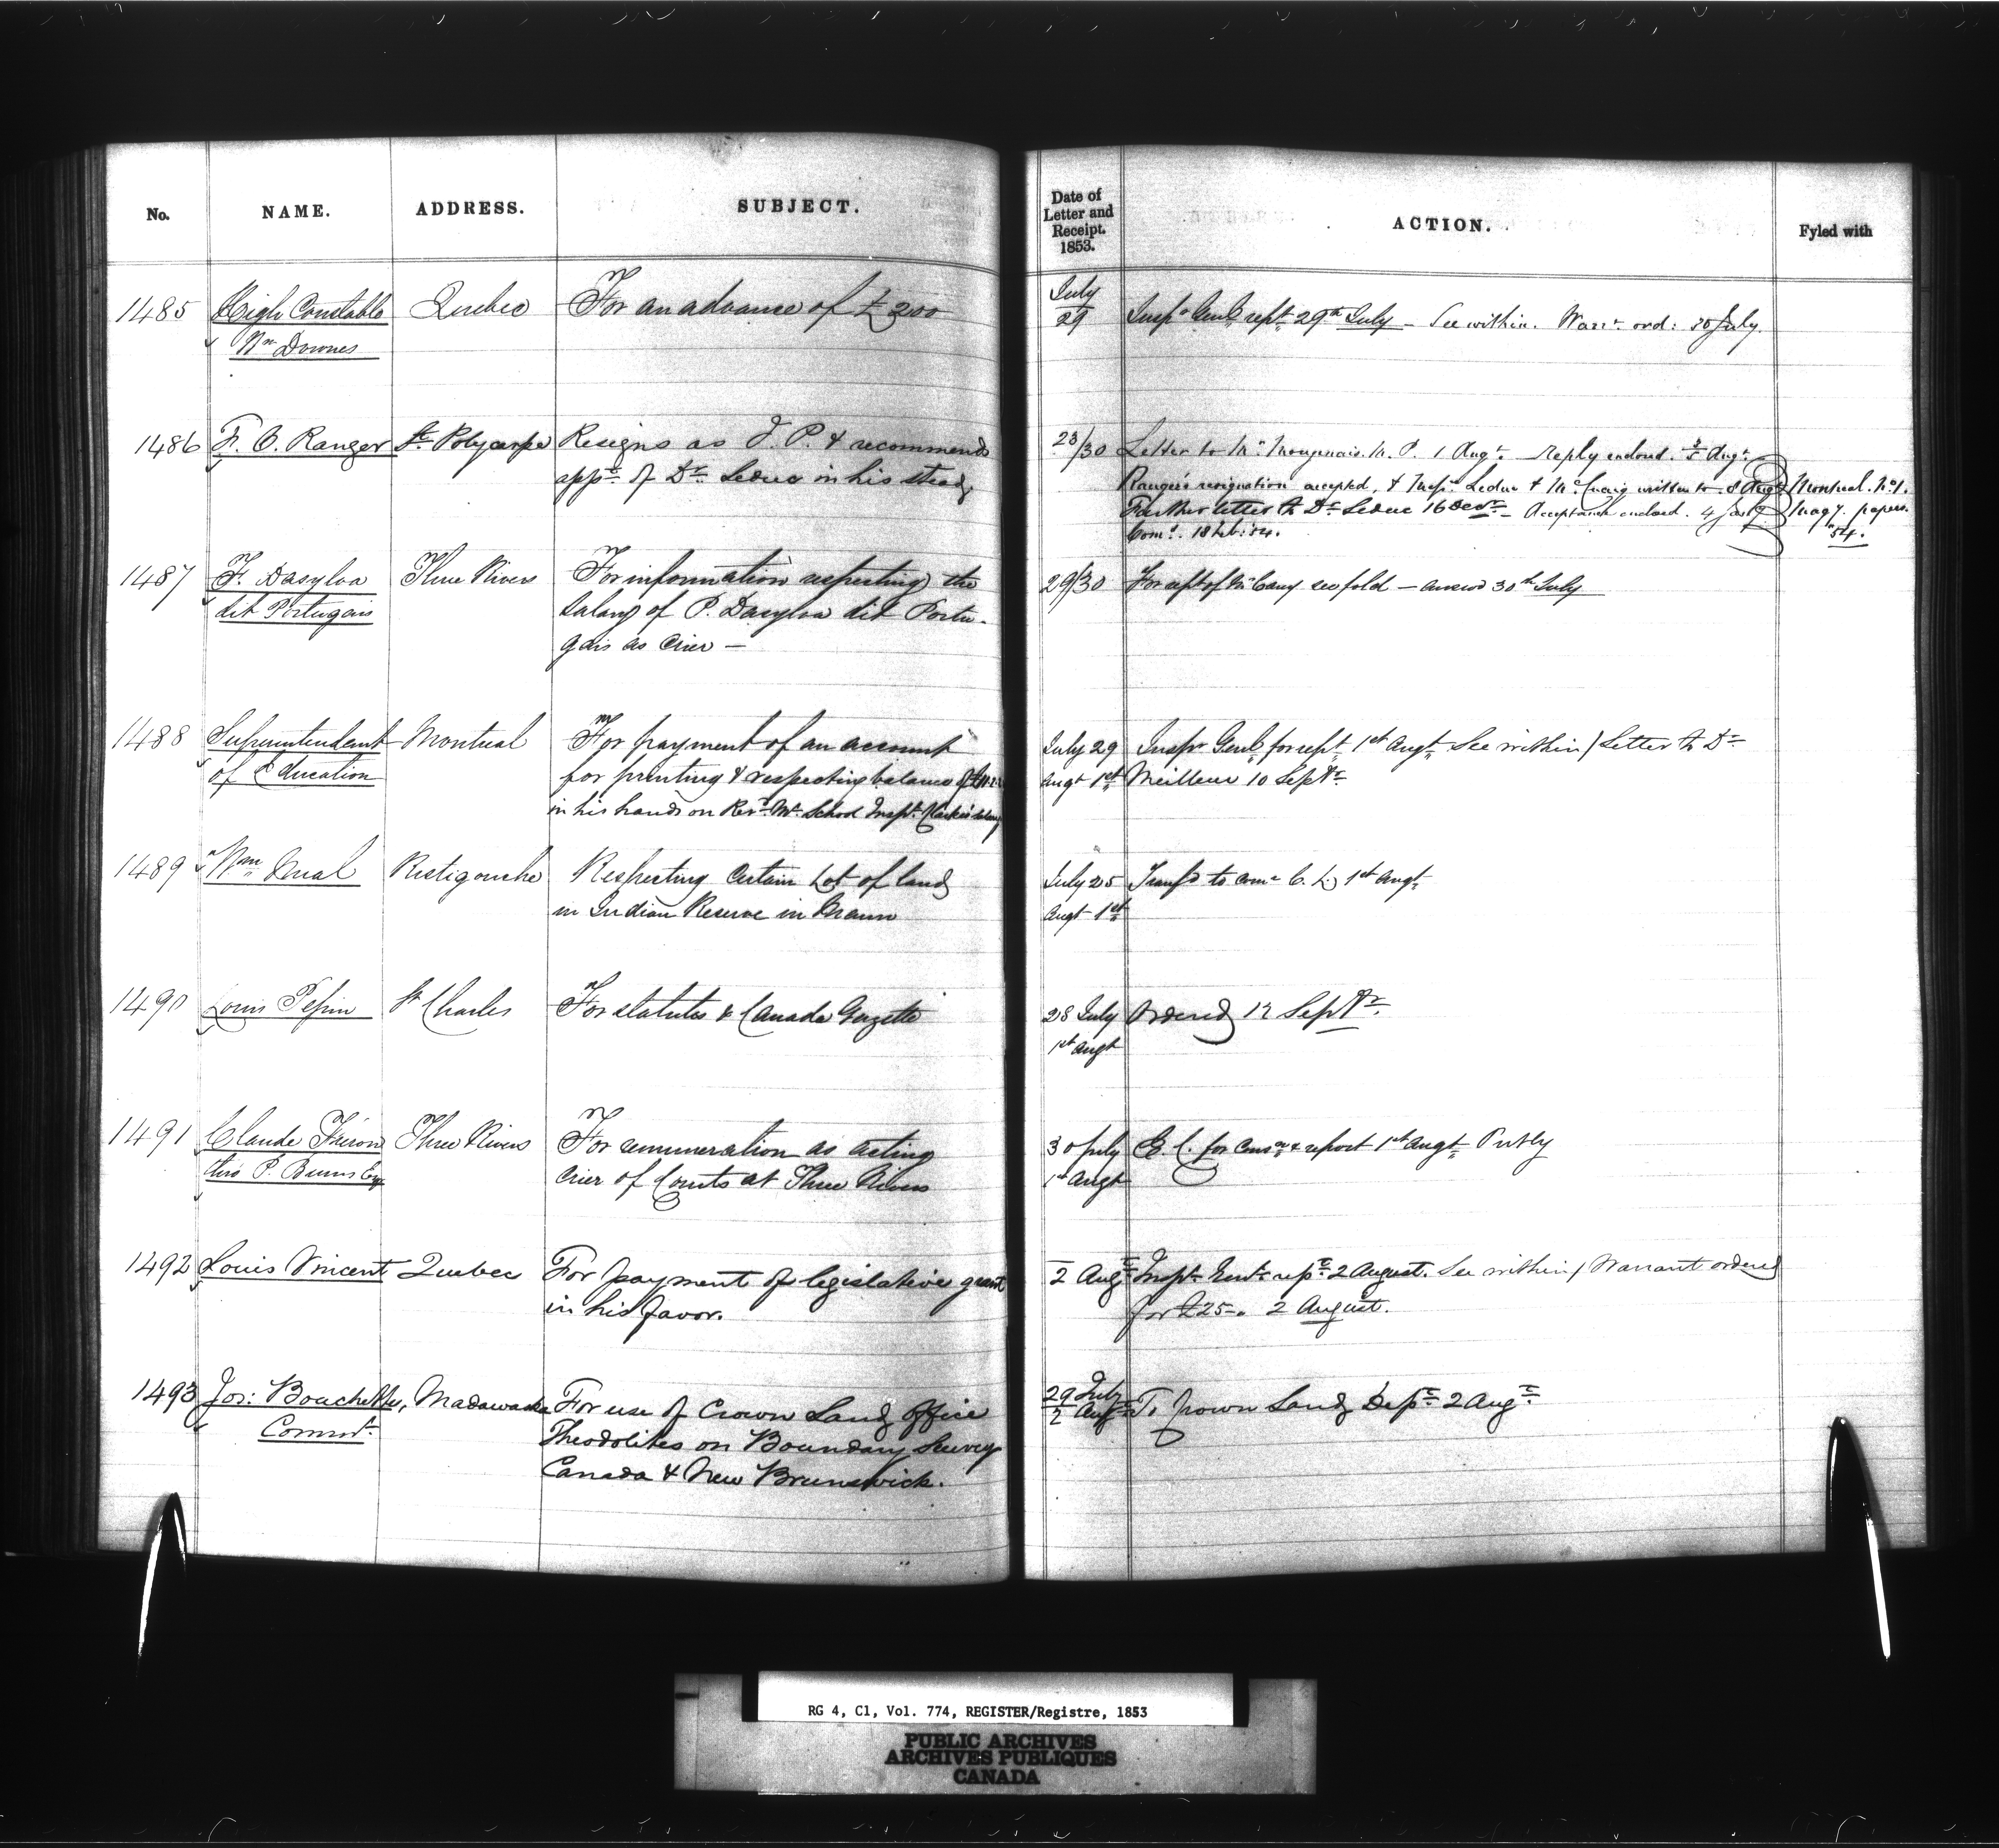 No. NAME. ADDRESS. SUBJECT.
Date of Letter and Receipt. 1853. ACTION. Fyled with
1485 High Constable Quebec For an advance of £200
Wm Downes
July 29 Inspr Genl rept 29th July - See within. Warrt ord: 30 July.
1486 F. O. Ranger St Polycarpe Resigns as J. P. & recommends
appt of Dr Leduc in his stead
23/30 Letter to Mr M. P. 1 Augt. Reply endosd. Augt.
Ranger's resignation accepted, & Leduc & written to 8 Augt Montreal. No 1.
Further letter to Dr Leduc 16 Decr - Acceptance enclosd. 4 Magy. papers.
Comn. 18 Feb: 54. 54.
1487 F. Dasylva Three Rivers For information respecting the
dit Portugais salary of P. Dasylva dit Portu-
gais as Crier —
29/30 For rept of see fold — answd 30th July
1488 Superintendent Montreal For payment of an account
of Education for printing & respecting balance of
in his hands on Revd Mr School Inspr Clarke's salary
July 29 Inspr Genl for rept 1st Augt See within / Letter to Dr
Augt 1st Meilleur 10 Septr
1489 Wm Restigouche Respecting Certain Lot of land
in Indian Reserve in Mann
July 25 Transfd to Comr C. L. 1st Augt
Augt 1st
1490 Louis Pepin St Charles For statutes & Canada Gazette
28 July Ordered 12 Septr.
1st Augt
1491 Claude Three Rivers For remuneration as acting
thro P. Burns Esq Crier of Courts at Three Rivers
30 July E. C. for Conson & report 1st Augt
1st Augt
1492 Louis Vincent Quebec For payment of legislative grant
in his favor.
2 Augt Inspr Genl rept 2 August. See within / Warrant ordered
for £25-. 2 August.
1493 Jos: Bouchette, Madawaska For use of Crown Land Office
Commr. Theodolites on Boundary Survey
Canada & New Brunswick.
29 July 2 Augt To Crown Land Dept 2 Augt
RG 4, C1, Vol. 774, REGISTER/Registre, 1853
PUBLIC ARCHIVES
ARCHIVES PUBLIQUES
CANADA